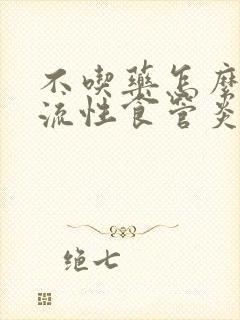 不喫藥怎麼
流性食管炎
绝七